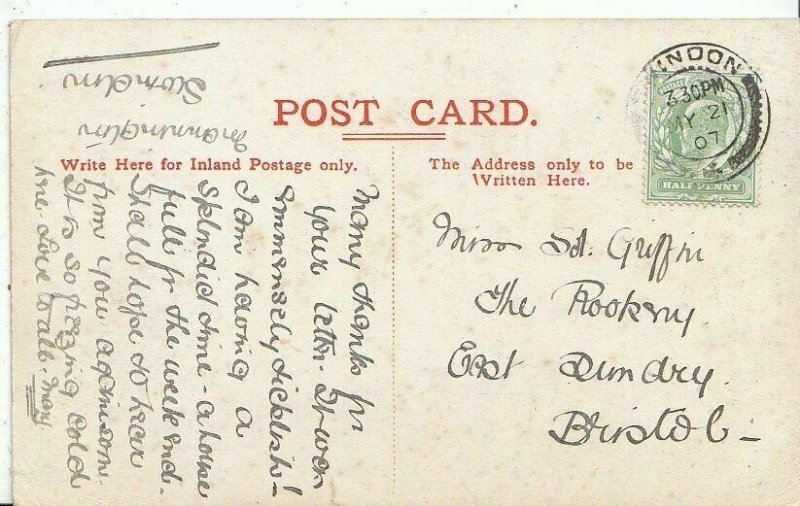 POST CARD.
Write Here for Inland Postage only.
The Address only to be
Written Here.
Manningtin
Swindon
Many thanks for
your letter. It was
immensely ticklish!
I am having a
splendid time - a house
full for the weekend.
Shall hope to hear
from you again soon.
It is so freezing cold
here. Love to all - Mary
Miss Griffin
The Rookery
East Dundry.
Bristol -
INDON
3.30PM
21
07
HALF PENNY